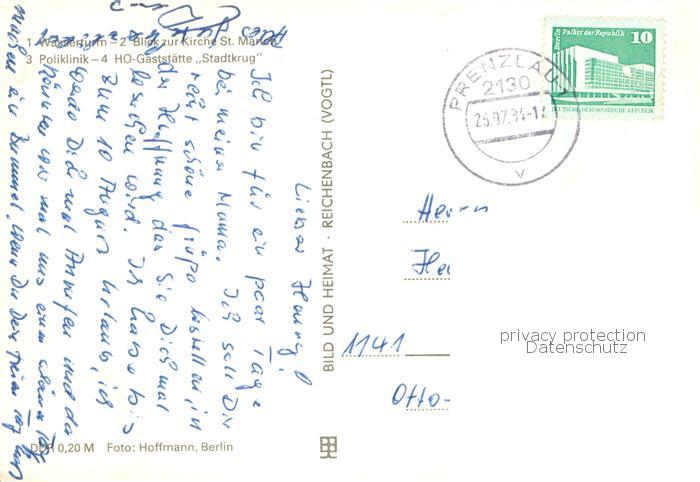 1 Wasserturm – 2 Blick zur Kirche St. Marien
3 Poliklinik – 4 HO-Gaststätte „Stadtkrug"
Lieber Henry!
Ich bin für ein paar Tage
bei meiner Mama. Ich soll Dir
recht schöne Grüße bestellen, in
der Hoffnung das Sie Dich mal
sehen wird. Ich habe bis
zum 10 August Urlaub, ich
werde Dich mal Anrufen und da
können wir mal uns einen
machen ein Bummel, wenn Du Dein freien Tag hast
DDR 0,20 M Foto: Hoffmann, Berlin
BILD UND HEIMAT · REICHENBACH (VOGTL)
PRENZLAU 1
2130
V
Berlin Palast der Republik
10
DEUTSCHE DEMOKRATISCHE REPUBLIK
Herrn
1141
Otto-
privacy protection
Datenschutz